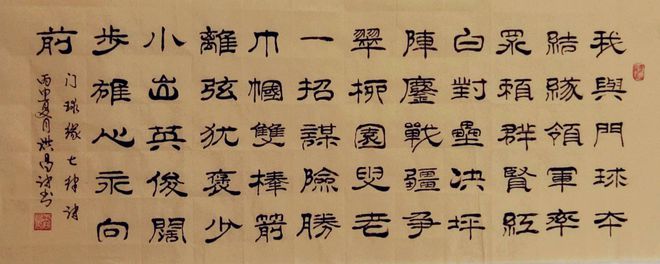 我與門球夲
結緣領軍率
眾賴群賢紅
白對壘决坪
陣鏖戰疆爭
翠柳園叟老
一招謀險勝
巾幗雙棒箭
離弦犹褒少
小出英俊闊
步雄心永向
前
门球缘七律诗
丙申夏月洪昌诗书